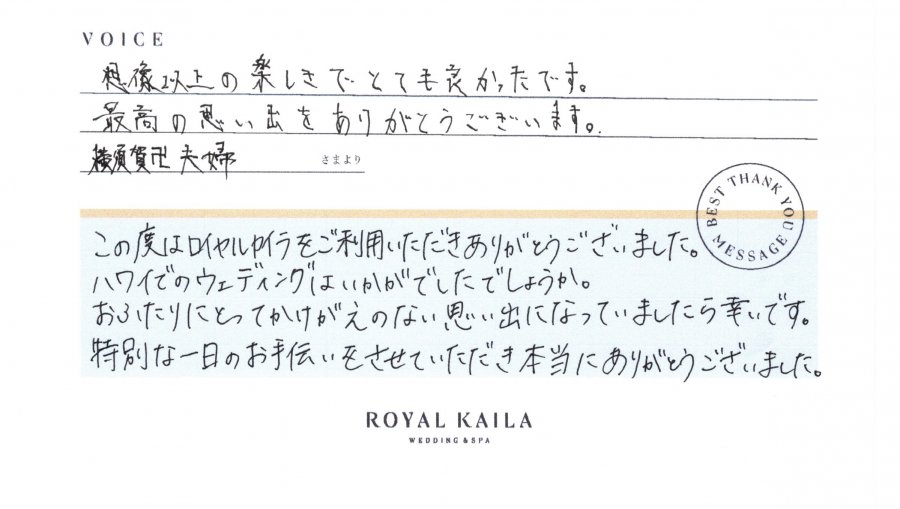 VOICE
想像以上の楽しさでとても良かったです。
最高の思い出をありがとうございます。
横須賀卍夫婦 さまより
BEST THANK YOU MESSAGE
この度はロイヤルカイラをご利用いただきありがとうございました。
ハワイでのウェディングはいかがでしたでしょうか。
おふたりにとってかけがえのない思い出になっていましたら幸いです。
特別な一日のお手伝いをさせていただき本当にありがとうございました。
ROYAL KAILA
WEDDING & SPA